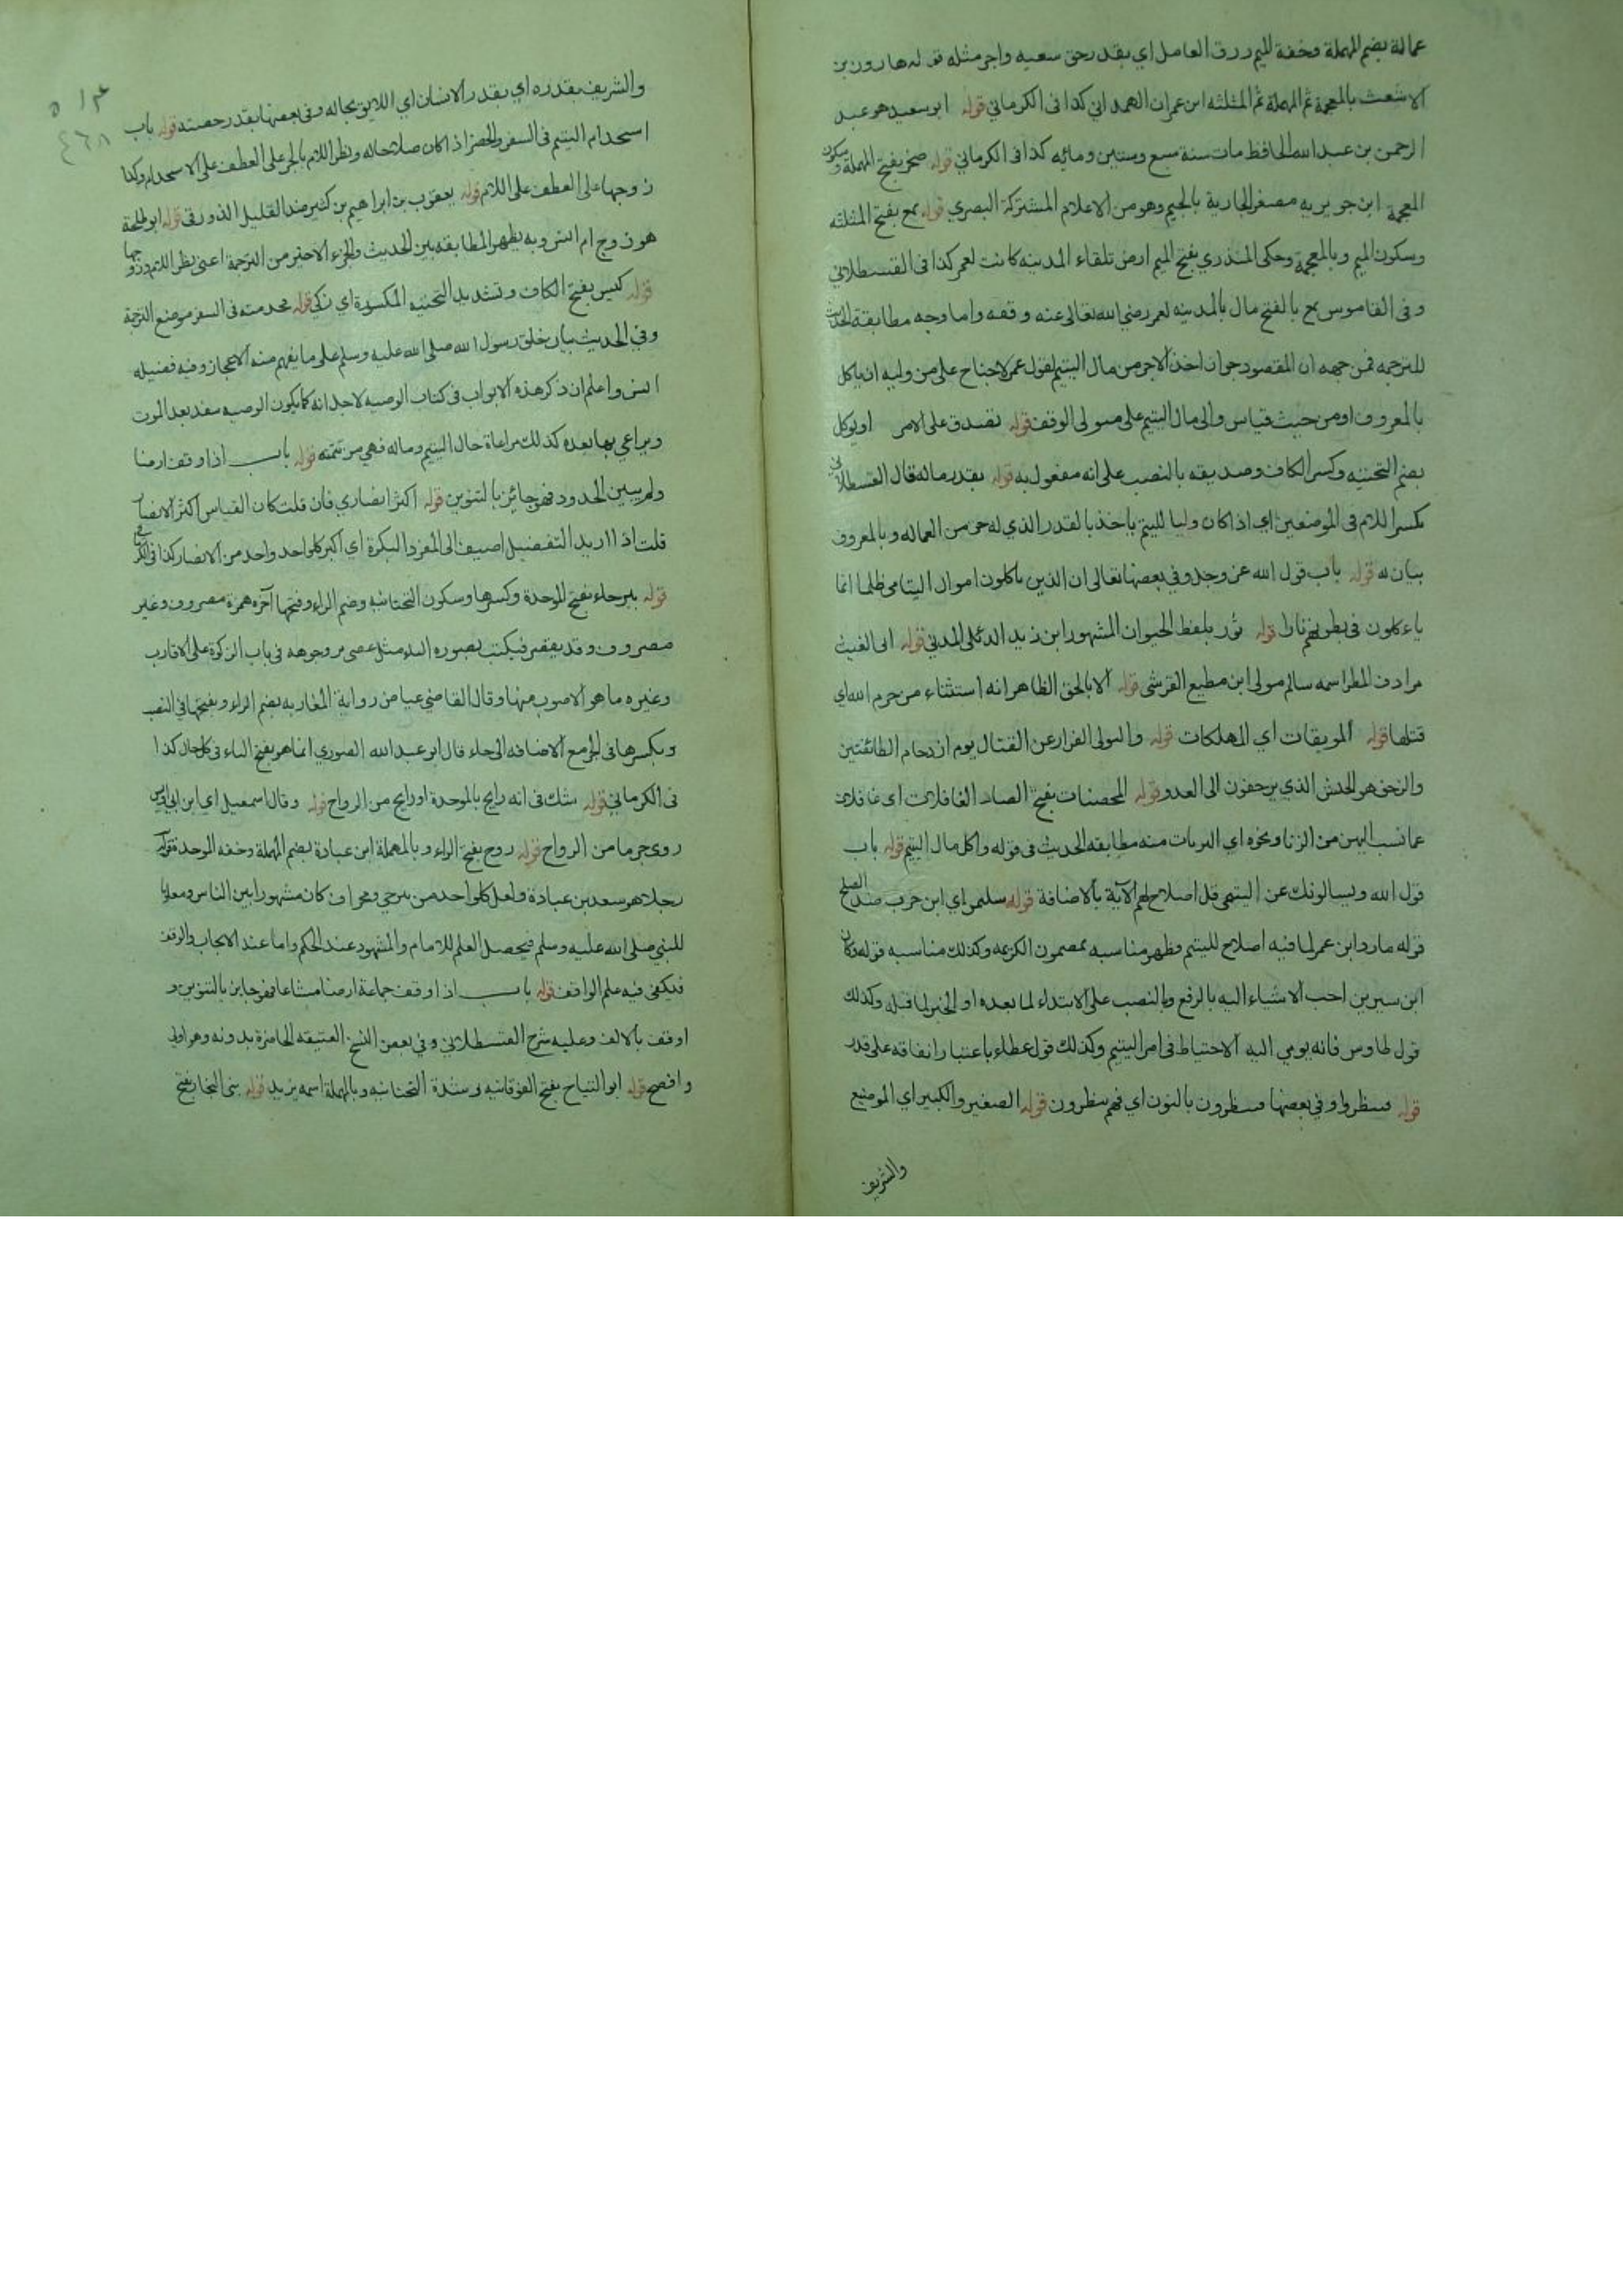 عمالة بضم المهملة وخفة الميم رزق العامل اي بقدر حق سعيه واجر مثله قوله هارون بن
الاشعث بالمعجمة ثم المهملة ثم المثلثه ابن عمران الهمداني كذا فى الكرماني قوله ابو سعيد هو عبد
الرحمن بن عبد الله الحافظ مات سنة سبع وستين ومائه كذا فى الكرماني قوله صخر بفتح المهملة وسكون
المعجمة ابن جويريه مصغر الجارية بالجيم وهو من الاعلام المشتركة البصري قوله ثمغ بفتح المثلثه
وسكون الميم وبالمعجمة وحكى المنذري بفتح الميم ارض تلقاء المدينه كانت لعمر كذا فى القسطلاني
وفى القاموس ثمغ بالفتح مال بالمدينه لعمر رضي الله تعالى عنه وقفه واما وجه مطابقة الحديث
للترجمه فمن جهه ان المقصود جواز اخذ الاجر من مال اليتيم لقول عمر لا جناح على من وليه ان ياكل
بالمعروف او من حيث قياس والى مال اليتيم على متولى الوقف قوله تصدق على الامر او يوكل
بضم التحتيه وكسر الكاف وصديقه بالنصب على انه مفعول به قوله بقدر ماله قال القسطلاني
بكسر اللام فى الموضعين اي اذا كان وليا لليتيم ياخذ بالقدر الذي له حق من العماله وبالمعروف
بيان له قوله باب قول الله عز وجل وفي بعضها تعالى ان الذين ياكلون اموال اليتامى ظلما انما
ياءكلون فى بطونهم نارا قوله ثور بلفظ الحيوان المشهور ابن زيد الدئلى المدني قوله ابى الغيث
مرادف المطر اسمه سالم مولى ابن مطيع القرشى قوله الا بالحق الظاهر انه استثناء من حرم الله اي
قتلها قوله الموبقات اي المهلكات قوله والتولى الفرار عن القتال يوم ازدحام الطائفتين
والزحف هو الجيش الذي يزحفون الى العدو قوله المحصنات بفتح الصاد الغافلات اى غافلات
عما نسب اليهن من الزنا ونحوه اي البريات منه مطابقه الحديث فى قوله واكل مال اليتيم قوله باب
قول الله ويسالونك عن اليتمى قل اصلاح لهم الآية بالاضافة قوله سليمن اي ابن حرب ضد الصلح
قوله ما رد ابن عمر لما فيه اصلاح لليتيم فظهر مناسبه بمضمون الكريمه وكذلك مناسبه قوله وكان
ابن سيرين احب الاشياء اليه بالرفع وبالنصب على الابتداء لما بعده او الخبر لما قبله وكذلك
قول طاوس فانه يومي اليه الاحتياط فى امر اليتيم وكذلك قول عطاء باعتبار انفاقه على قدر
قوله فينظروا وفي بعضها فينظرون بالنون اي فهم ينظرون قوله الصغير والكبير اي الوضيع
والشريف
والشريف بقدره اي بقدر الانسان اي اللايق بحاله وفى بعضها بقدر حصته قوله باب
استخدام اليتيم فى السفر والحضر اذا كان صلاحا له ونظر الام بالجر على العطف على الاستخدام وكذا
زوجها على العطف على الام قوله يعقوب بن ابراهيم بن كثير ضد القليل الدورقى قوله ابو طلحة
هو زوج ام انس وبه يظهر المطابقه بين الحديث والجزء الاخير من الترجمة اعنى نظر الام وزوجها
قوله كيس بفتح الكاف وتشديد التحتيه المكسورة اي ذكي قوله فخدمته فى السفر موضع الترجمة
وفي الحديث بيان خلق رسول الله صلى الله عليه وسلم على ما يفهم منه الاعجاز وفيه فضيله
انس واعلم ان ذكر هذه الابواب فى كتاب الوصيه لاجل انه كما يكون الوصيه ينفد بعد الموت
ويراعي بها بعده كذلك مراعاة حال اليتيم وماله فهي من تتمته قوله باب اذا وقف ارضا
ولم يبين الحدود فهو جائز بالتنوين قوله اكثر انصاري فان قلت كان القياس اكثر الانصار
قلت اذا اريد التفضيل اضيف الى المفرد النكرة اي اكثر كل واحد واحد من الانصار كذا فى الكرماني
قوله بيرحاء بفتح الموحدة وكسرها وسكون التحتانيه وضم الراء وفتحها آخره همزة مصروف وغير
مصروف وقد يقصر فيكتب بصورة الياء مثل عصى مر وجوهه فى باب الزكوة على الاقارب
وغيره ما هو الاصوب منها وقال القاضي عياض رواية المغاربه بضم الراء وبفتحها في النصب
وبكسرها فى الجر مع الاضافه الى حاء قال ابو عبد الله الصوري انما هو بفتح الباء فى كل حال كذا
فى الكرماني قوله شك فى انه رابح بالموحدة او رايح من الرواح قوله وقال اسمعيل اي ابن ابي اويس
روى جزما من الرواح قوله روح بفتح الراء وبالمهملة ابن عبادة بضم المهملة وخفه الموحدة قوله
رجلا هو سعد بن عبادة ولعل كل واحد من بيرحى ومخراف كان مشهورا بين الناس ومعلوما
للنبي صلى الله عليه وسلم فيحصل العلم للامام والشهود عند الحكم واما عند الايجاب والوقف
فيكفى فيه علم الواقف قوله باب اذا وقف جماعة ارضا مشاعا فهو جايز بالتنوين و
اوقف بالالف وعليه شرح القسطلاني وفي بعض النسخ العتيقه الحاضرة بدونه وهو اولى
وافصح قوله ابو التياح بفتح الفوقانيه وشدة التحتانيه وبالمهملة اسمه يزيد قوله بنى النجار بفتح
٤٦٨